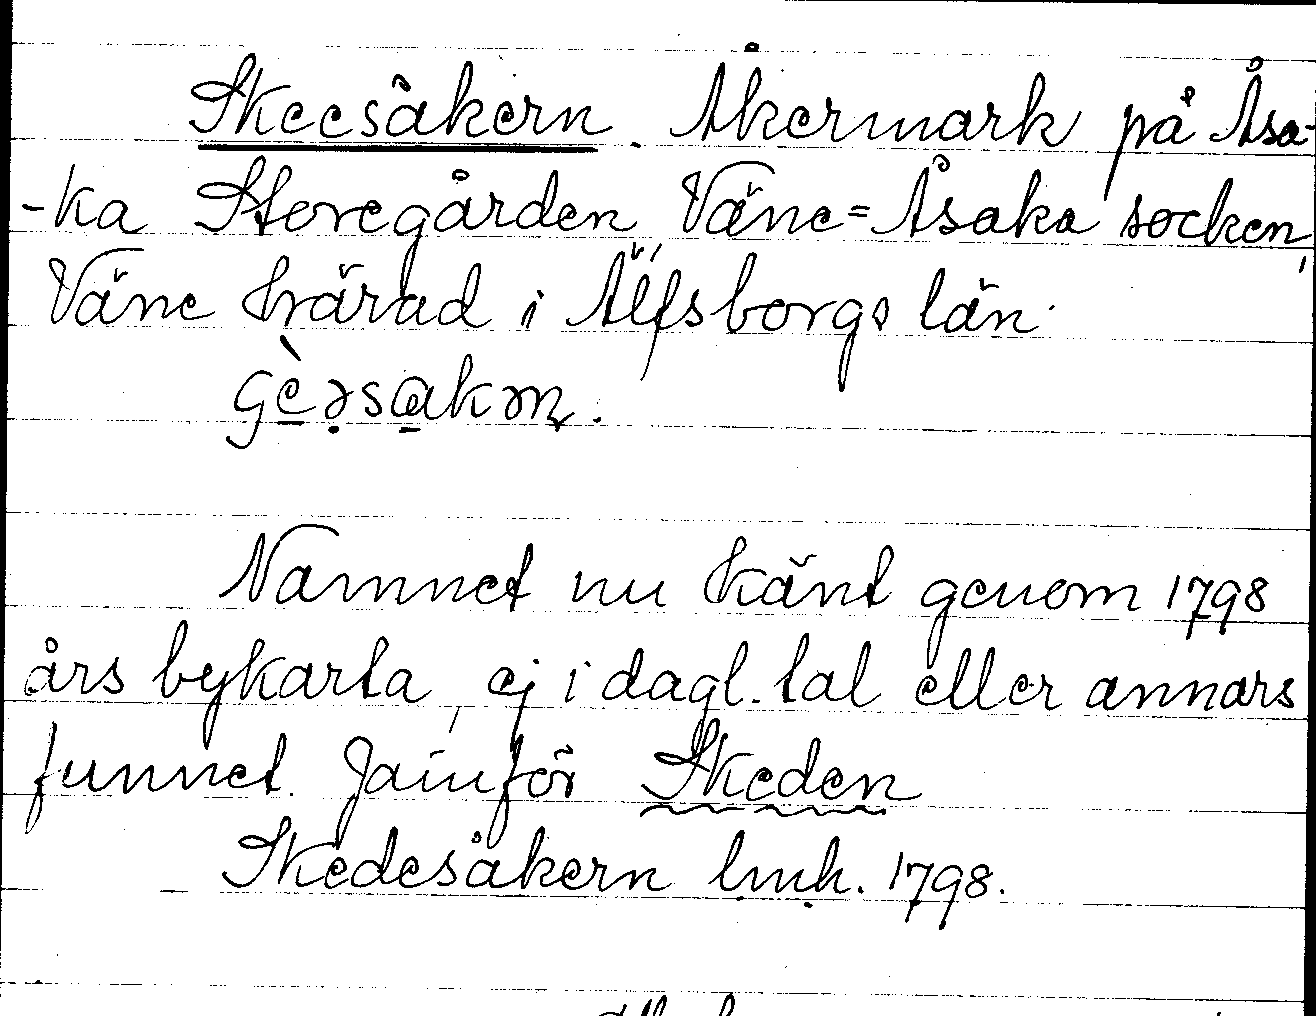 Skeesåkern. Åkermark på Åsa-
-ka Storegården, Väne=Åsaka socken,
Väne härad i Älfsborgs län.
Namnet nu känt genom 1798
års bykarta, ej i dagl. tal eller annars
funnet. Jämför Skeden
Skedesåkern lmh. 1798.